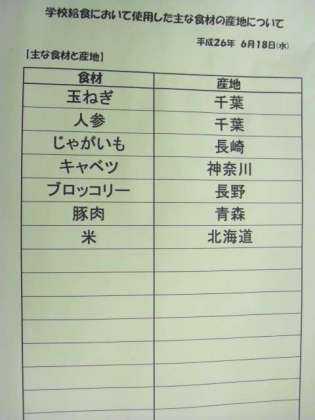 学校給食において使用した主な食材の産地について
平成26年 6月18日(水)
【主な食材と産地】
食材 産地
玉ねぎ 千葉
人参 千葉
じゃがいも 長崎
キャベツ 神奈川
ブロッコリー 長野
豚肉 青森
米 北海道